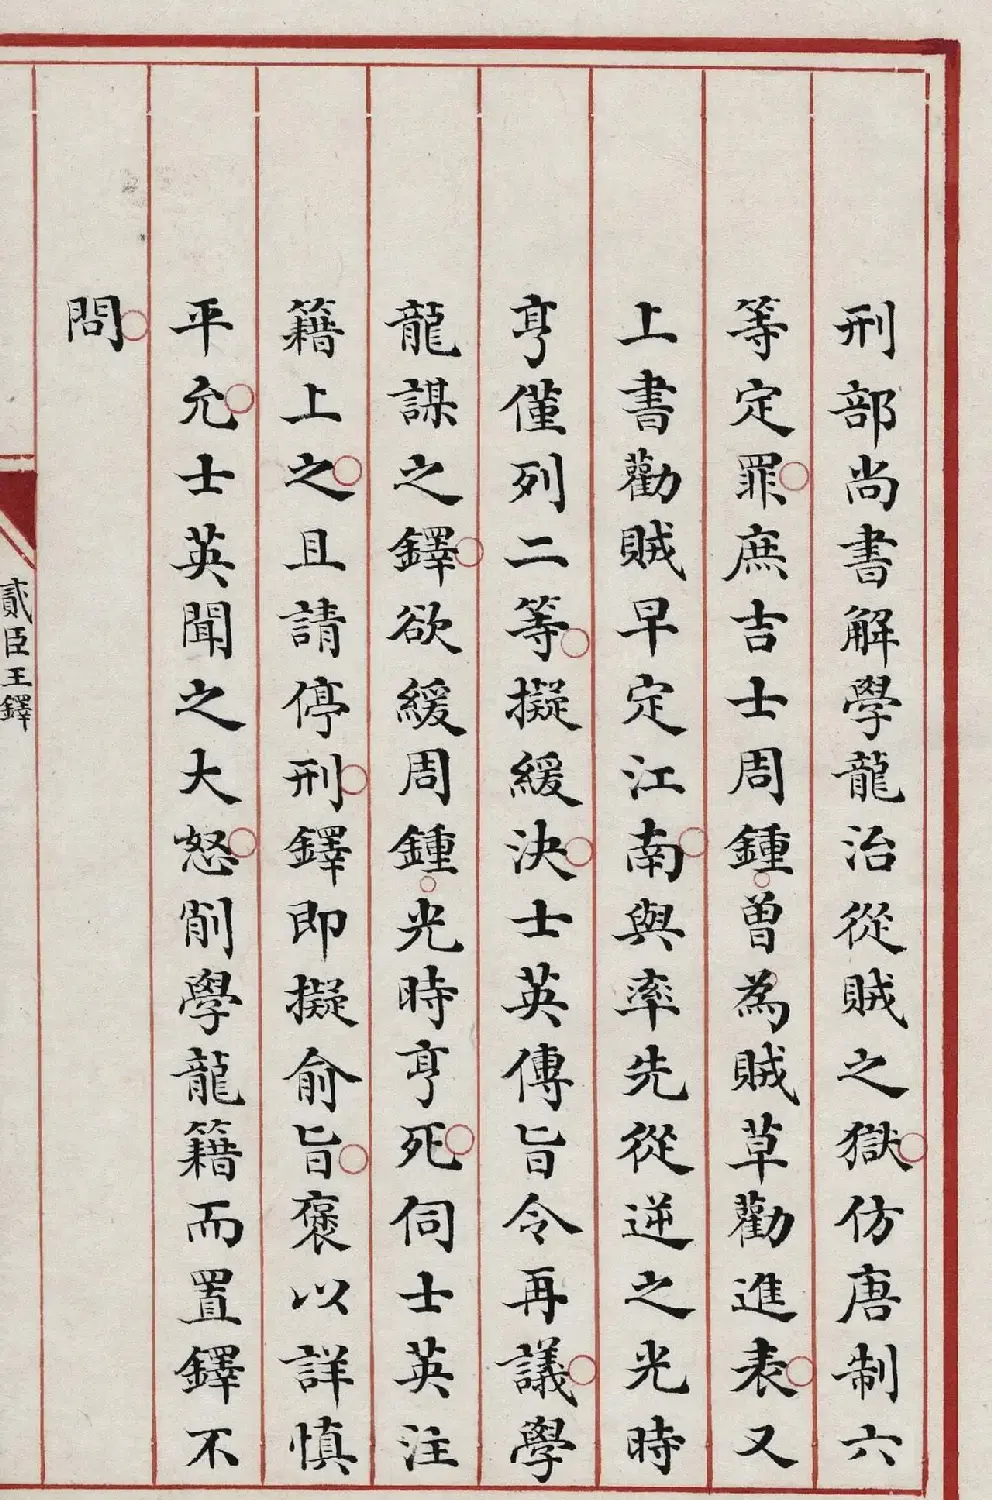 刑部尚書解學龍治從賊之獄仿唐制六
等定罪庶吉士周鍾曾為賊草勸進表又
上書勸賊早定江南與率先從逆之光時
亨僅列二等擬緩決士英傳旨令再議學
龍謀之鐸欲緩周鍾光時亨死伺士英注
籍上之且請停刑鐸即擬俞旨褒以詳慎
平允士英聞之大怒削學龍籍而置鐸不
問
貳臣王鐸